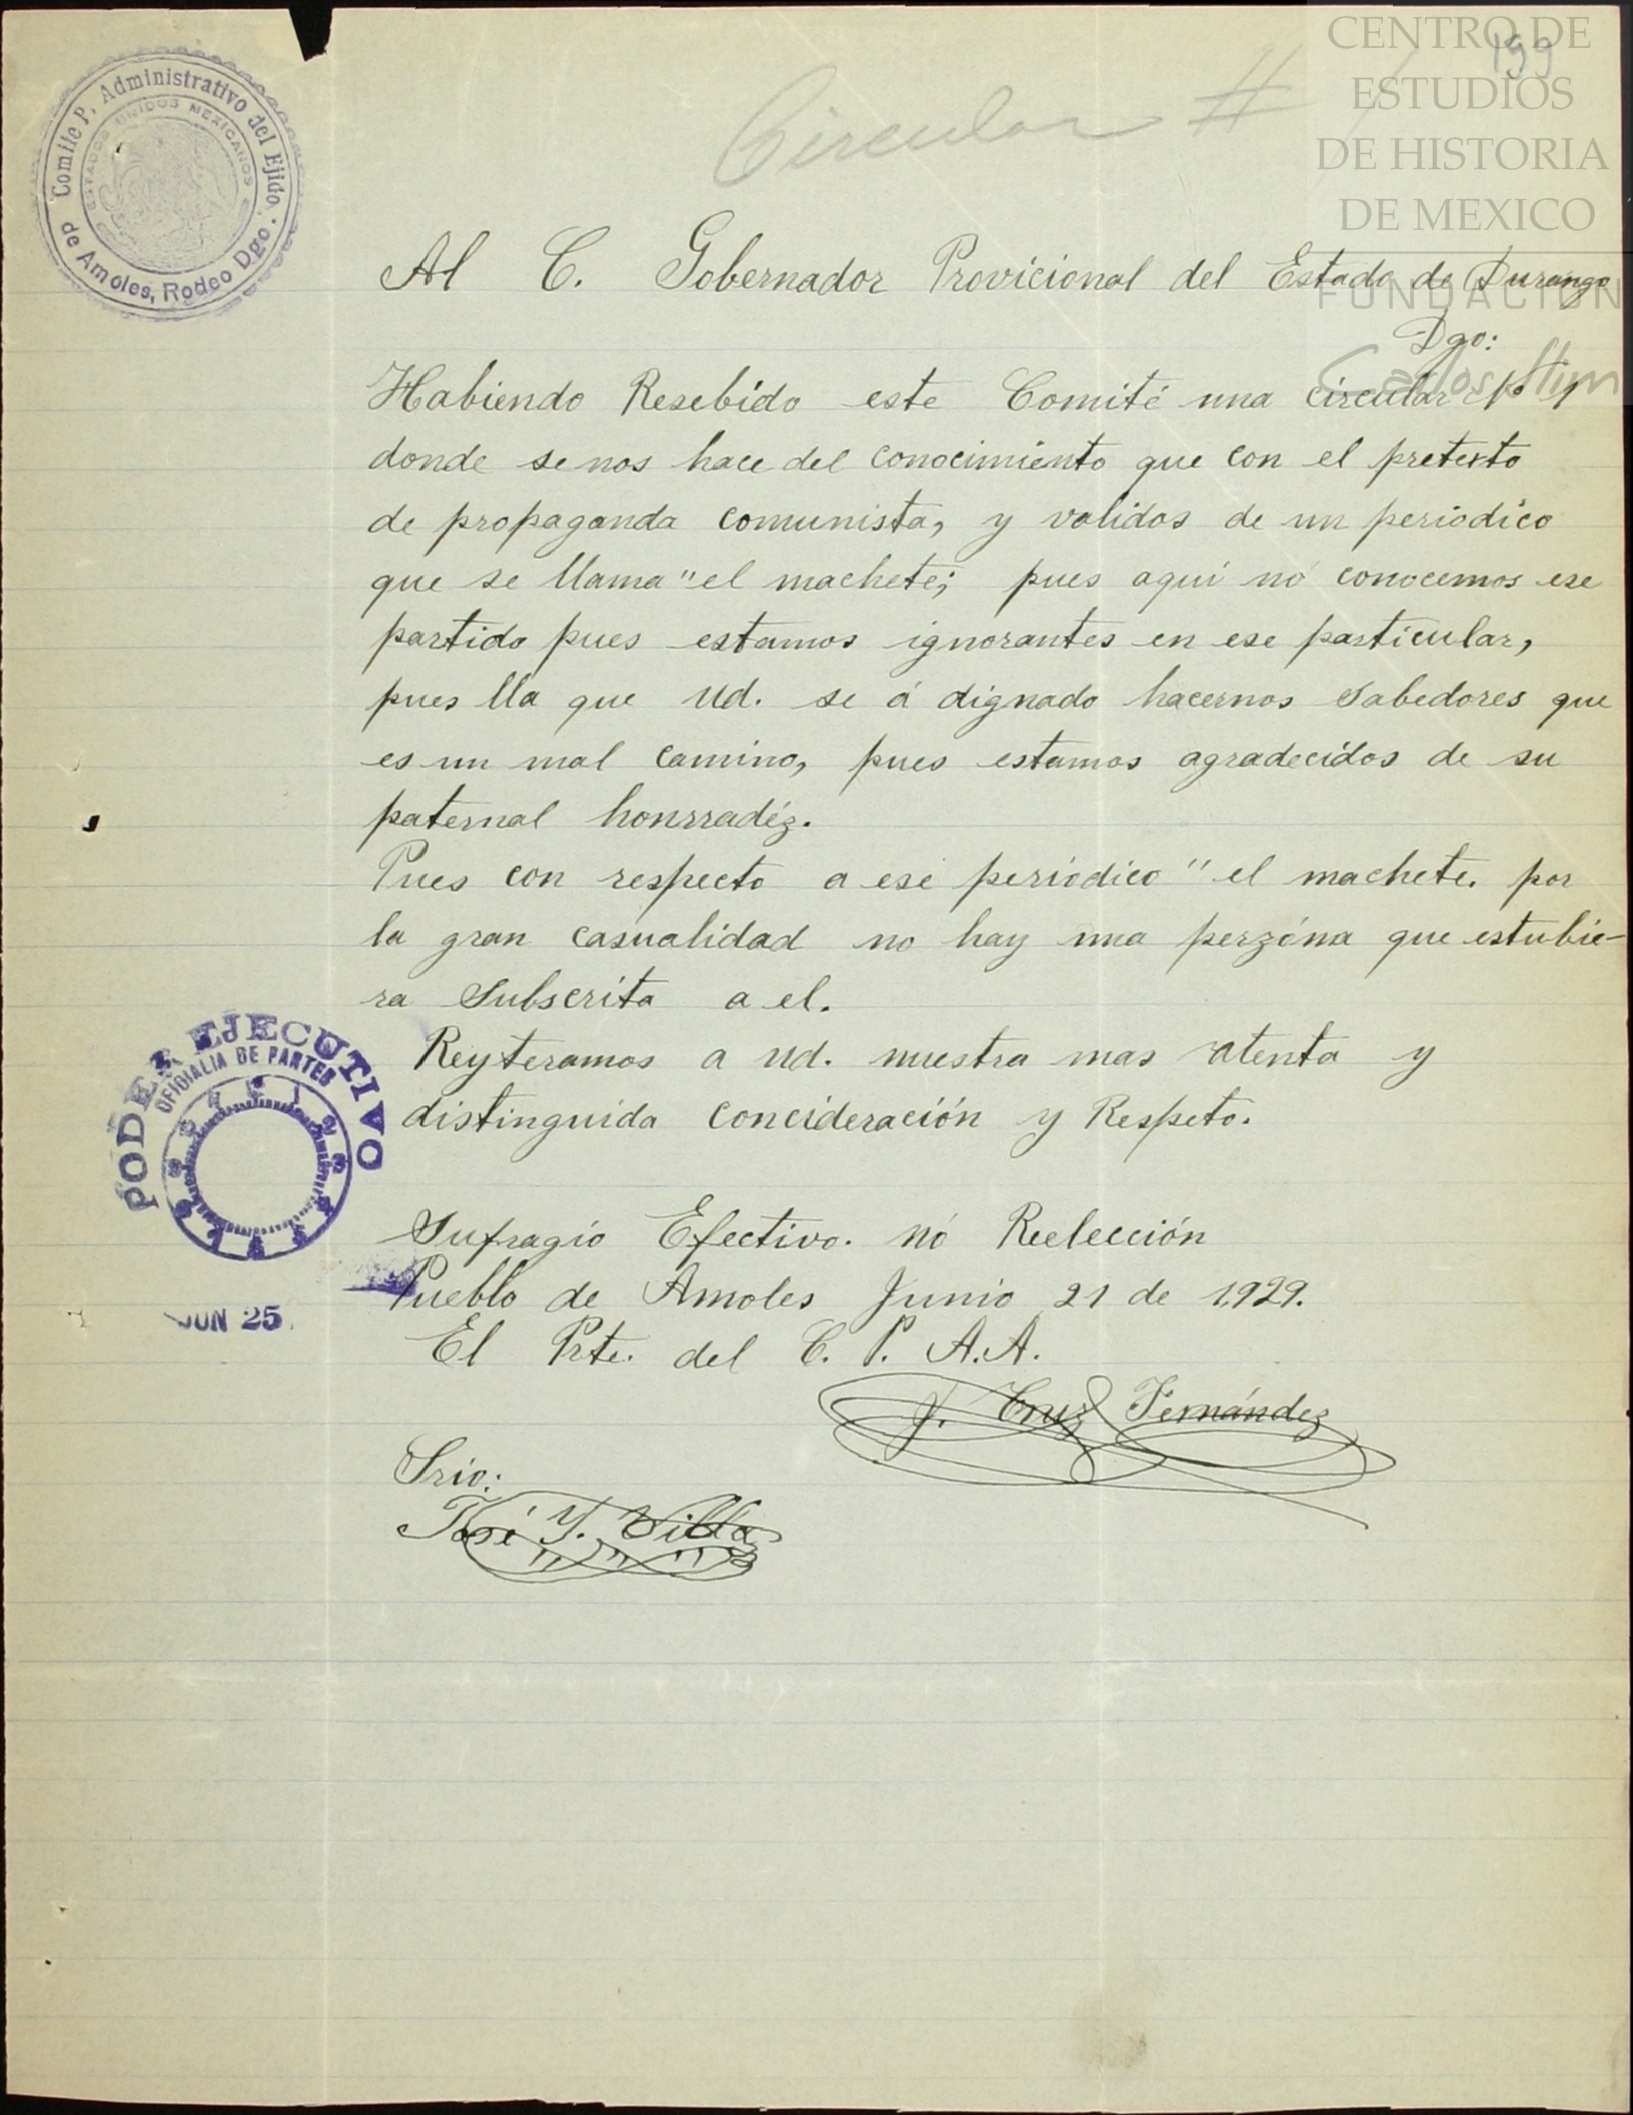 CENTRO DE
ESTUDIOS
DE HISTORIA
DE MEXICO
FUNDACION
Carlos Slim
199
Circular #
Comite P. Administrativo del Ejido.
de Amoles, Rodeo Dgo.
ESTADOS UNIDOS MEXICANOS
Al C. Gobernador Provicional del Estado de Durango
Dgo:
Habiendo Resebido este Comité una circular No 1
donde se nos hace del conocimiento que con el pretexto
de propaganda comunista, y validos de un periodico
que se llama "el machete; pues aqui nó conocemos ese
partido pues estamos ignorantes en ese particular,
pues lla que Ud. se á dignado hacernos Sabedores que
es un mal camino, pues estamos agradecidos de su
paternal honrradéz.
Pues con respecto a ese periódico "el machete. por
la gran casualidad no hay una perzóna que estubie-
ra Subscrita a el.
Reyteramos a ud. nuestra mas atenta y
distinguida concideración y Respeto.
PODER EJECUTIVO
OFICIALIA DE PARTES
JUN 25
Sufragio Efectivo. nó Reelección
Pueblo de Amoles Junio 21 de 1,929.
El Prte. del C. P. A.A.
J. Cruz Fernández
Srio:
José Y. Villa